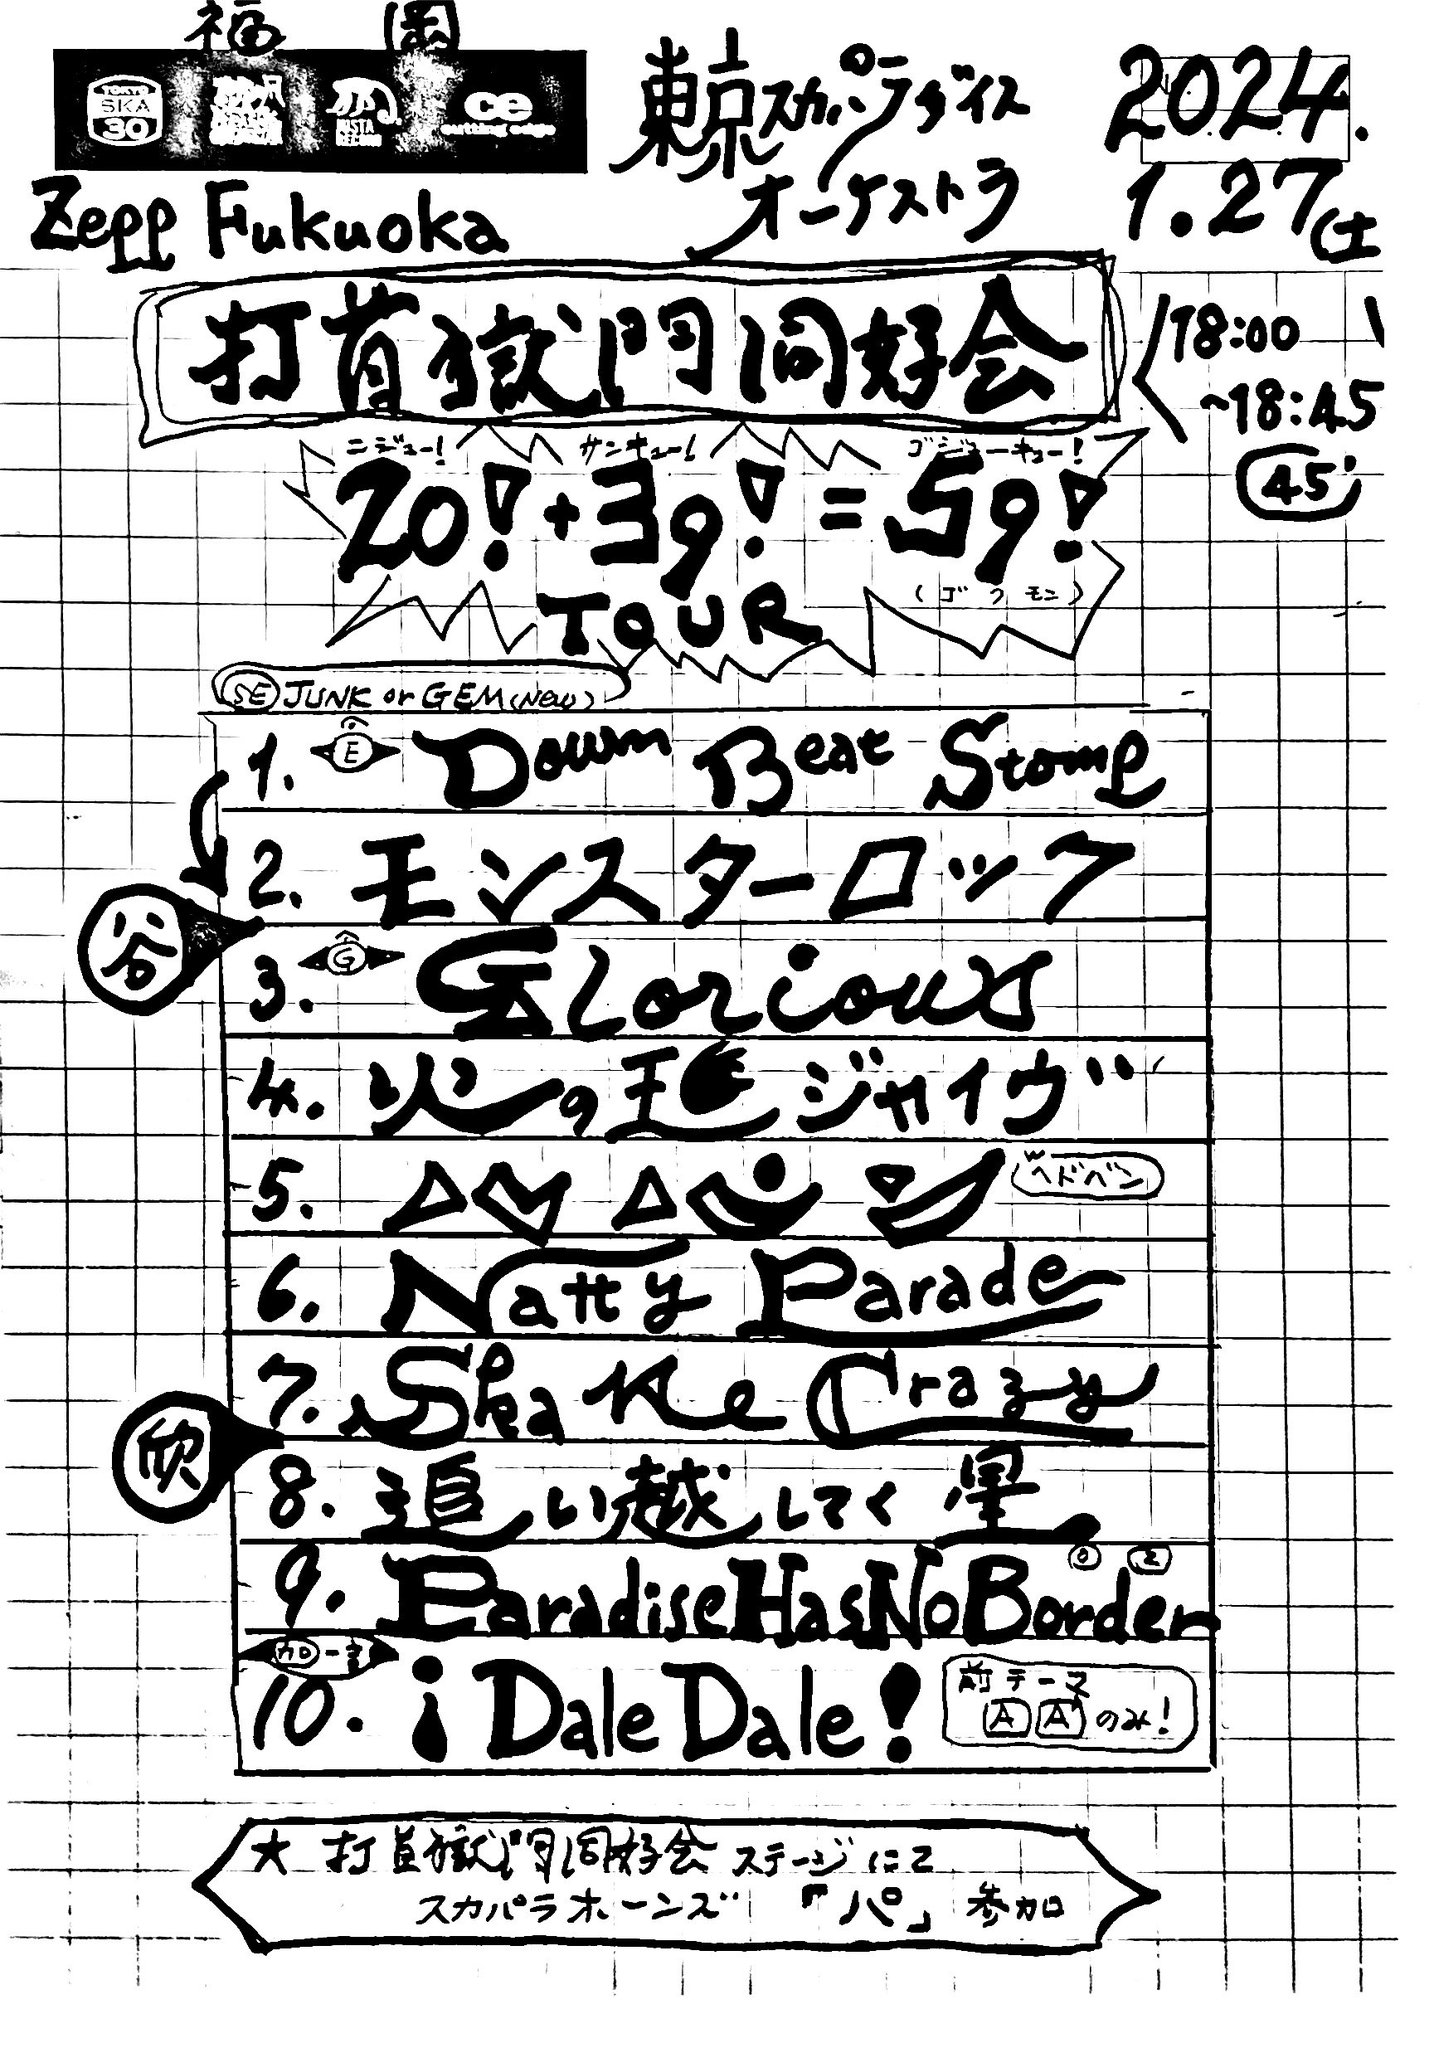 福岡
TOKYO
SKA
30
JUSTA
RECORD
ce
cutting edge
東京スカパラダイス
オーケストラ
2024.
1.27(土
Zepp Fukuoka
打首獄門同好会
18:00
~18:45
45'
ニジュー! サンキュー! ゴジューキュー!
20!+39!=59!
(ゴクモン)
TOUR
SE JUNK or GEM (New)
1. E Down Beat Stomp
2. モンスターロック
谷
3. G Glorious
4. 火の玉ジャイヴ
5. ヘドバン
6. Natty Parade
7. Skake Crazy
欣
8. 追い越してく星
9. Paradise Has No Border
10. ¡Dale Dale!
前テーマ
A A' のみ!
★ 打首獄門同好会 ステージにて
スカパラホーンズ 「パ」参加